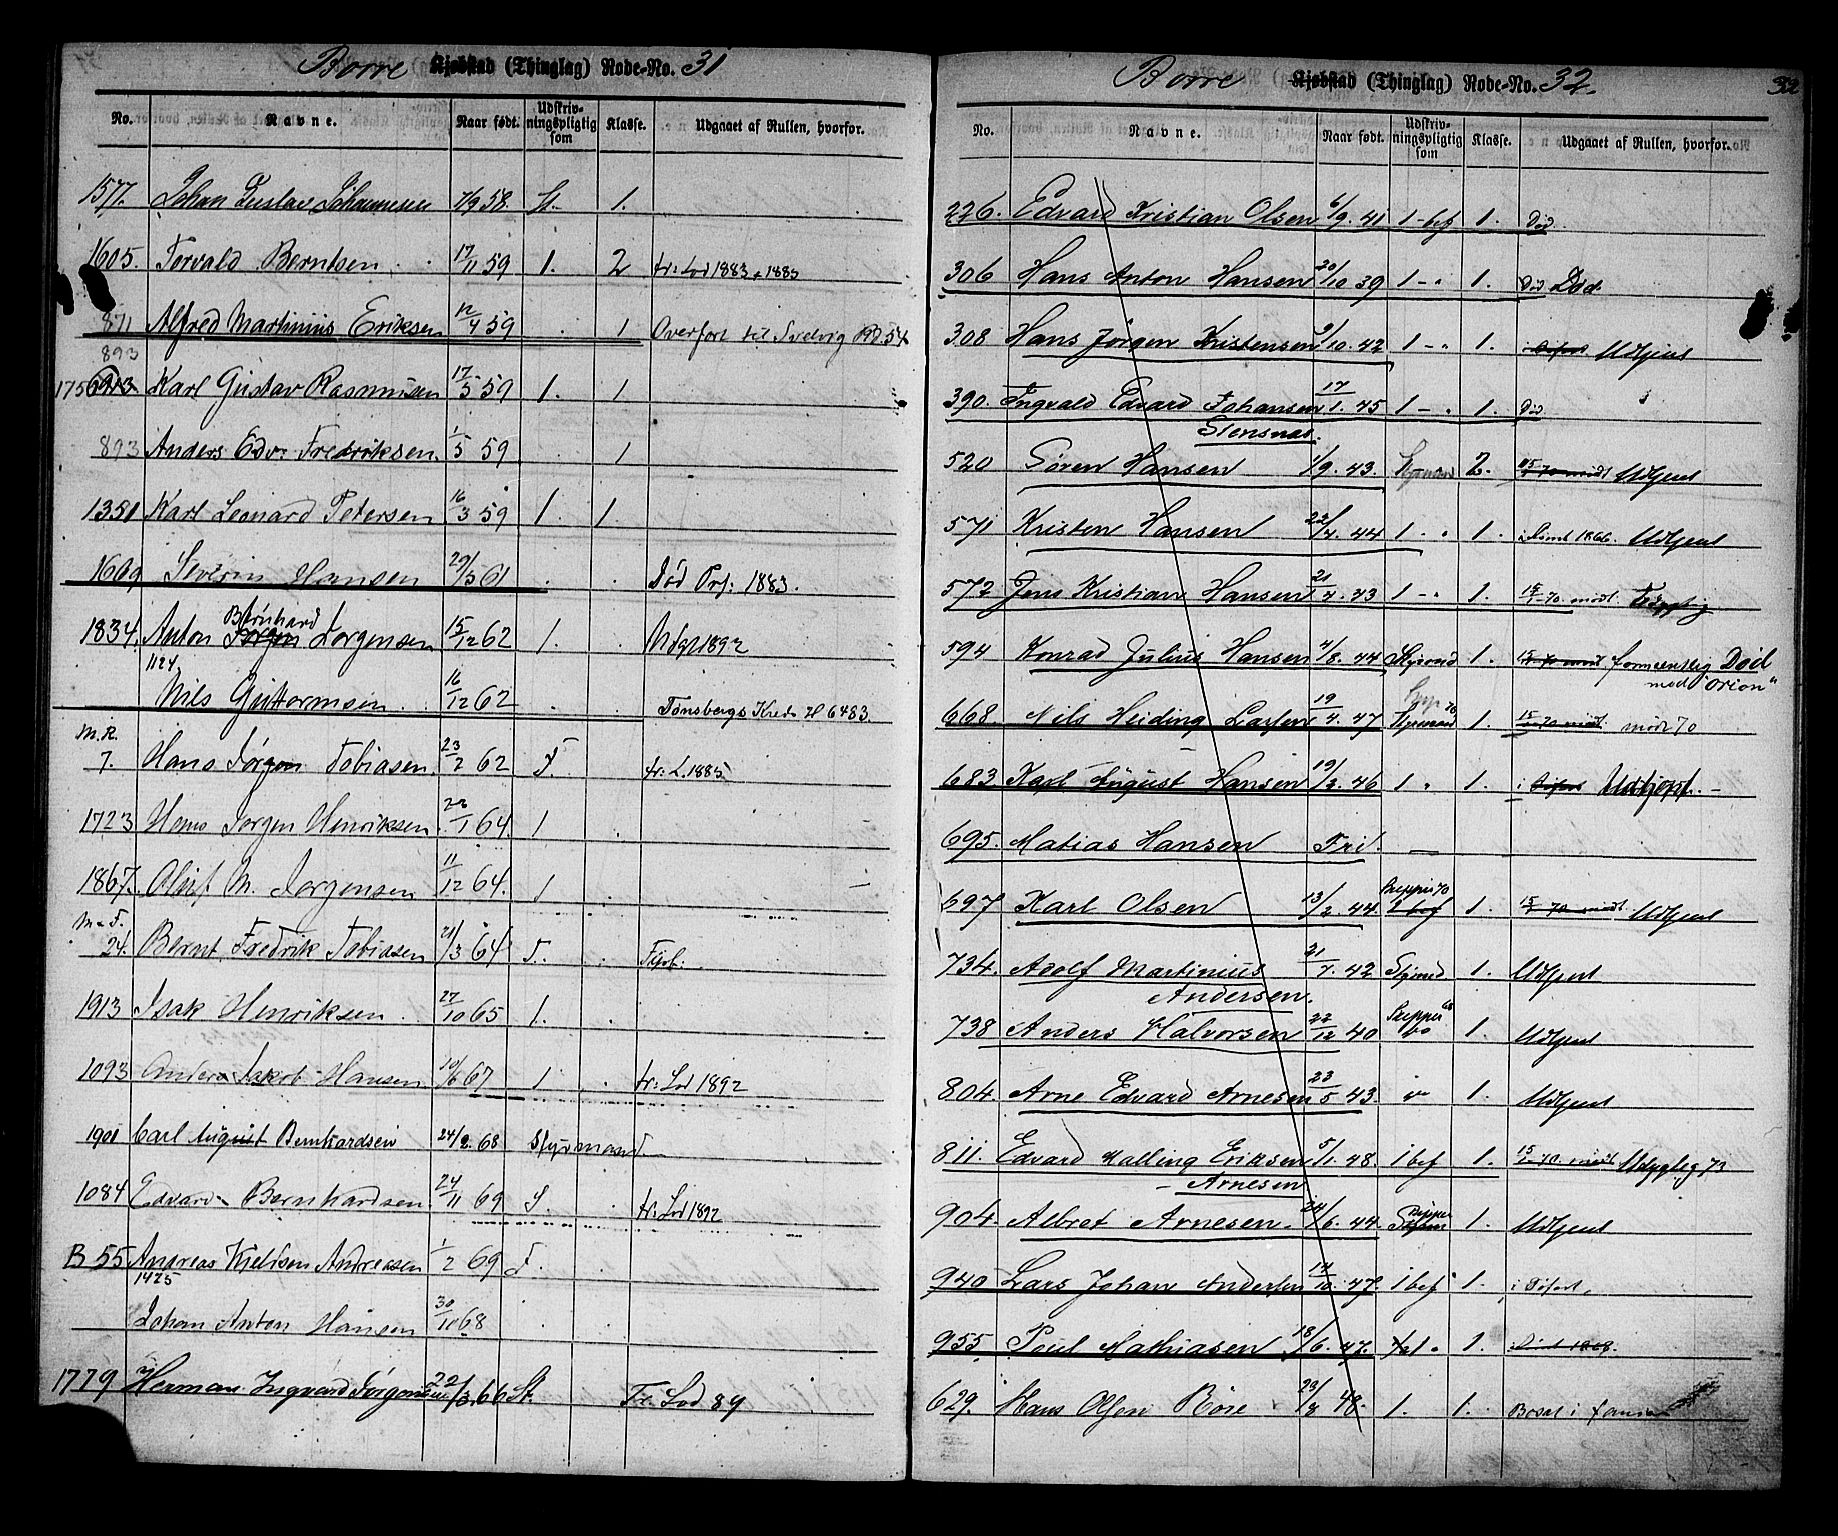 Borre Kjøbstad (Thinglag) Rode-No. 31
No. Navne. Naar født. Udskriv-ningspligtig som Klasse. Udgaaet af Rullen, hvorfor.
1577. Johan Gustav Johannesen 7/9 58 St. 1.
1605. Torvald Berntsen 17/11 59 1. 2 fr: Lod 1883 1885
871 Alfred Martinius Eriksen 12/4 59 1 Overfört til Svelvig RO. 54
893
Karl Gustav Rasmussen 17/5 59 1. 1
893 Anders Edv: Fredriksen. 1/5 59 1
1351 Karl Leonard Petersen 16/3 59 1. 1
1609 Severin Hansen 29/3 61 Död Prf: 1883.
Bernhard
1834. Anton Jørgen Jørgensen 15/12 62 1. Udgl 1892
1124
Nils Guttormsen 16/12 62 Tønsbergs Kreds N 6483.
M.R.
7. Hans Jørgen Tobiasen 23/2 62 F. fr: L. 1885
1723 Hans Jørgen Henriksen 23/1 64. 1
1867. Oluf M. Jørgensen 11/12 64. 1
M.F.
24. Bernt Fredrik Tobiasen 21/3 64 F.
1913 Isak Henriksen 27/10 65 1.
1093 Anders Jakob Hansen 10/6 67 1 fr: Lod 1892
1901 Carl August Bernhardsen 24/2. 68 Styrmand.
1084 Edvard Bernhardsen 24/11 69 S. fr: Lod 1892
B 55 Andreas Kjeldsen Andreasen 1/2 69 F.
1425
Johan Anton Hansen 30/10 68
1779 Herman Ingvard Jørgensen 22/3. 66 St. Fr. Lod 89
Borre Kjøbstad (Thinglag) Rode-No. 32. 32
No. Navne. Naar født. Udskriv-ningspligtig som Klasse. Udgaaet af Rullen, hvorfor.
226. Edvard Kristian Olsen 6/9. 41 1-bef 1. Død
306 Hans Anton Hansen 20/10 39 1-" 1. Død Død.
308 Hans Jørgen Kristensen 9/10. 42 1-" 1. Udtjent
390. Ingvald Edvard Johansen 17/1. 45 1-" 1. Død
Stensnæs.
520 Søren Hansen 1/9. 43. Styrmand 2. 15/ 70 mødt Udtjent
571 Kristen Hansen 22/4. 44 1. " 1. Udtjent
572 Jens Kristian Hansen 21/4. 43 1-" 1. 15/ 70. mødt.
594 Konrad Julius Hansen 4/8. 44 Styrmand 1. 15/ 70 mødt formentlig Död
med "Orion"
668. Nils Heiding Larsen 19/4. 47 Styrmand 1. 15/ 70 mødt. mødt 70
683. Karl August Hansen 19/2. 46 1 " 1.
695. Matias Hansen Fri. —
697 Karl Olsen 13/2. 44. 1 bef 1. 15/ 70 mødt. Udtjent
734. Adolf Martinius 21/7. 42 Styrmd 1. Udtjent
Andersen.
738 Anders Halvorsen 22/12 40 1. Udtjent
804. Arne Edvard Arnesen 23/5 43. 1. Udtjent
811. Edvard Malling Eriksen 5/1. 48. 1 bef 1. 15/ 70. mødt Udygtig 72
Arnesen
904. Albret Arnesen. 24/6. 44. 1. Udtjent
940 Lars Johan Andersen 14/10. 47. 1 bef 1.
955 Poul Mathiasen 18/6. 47. 1.
629. Hans Olsen Röre 23/8 48. 1. 1. Bosat i